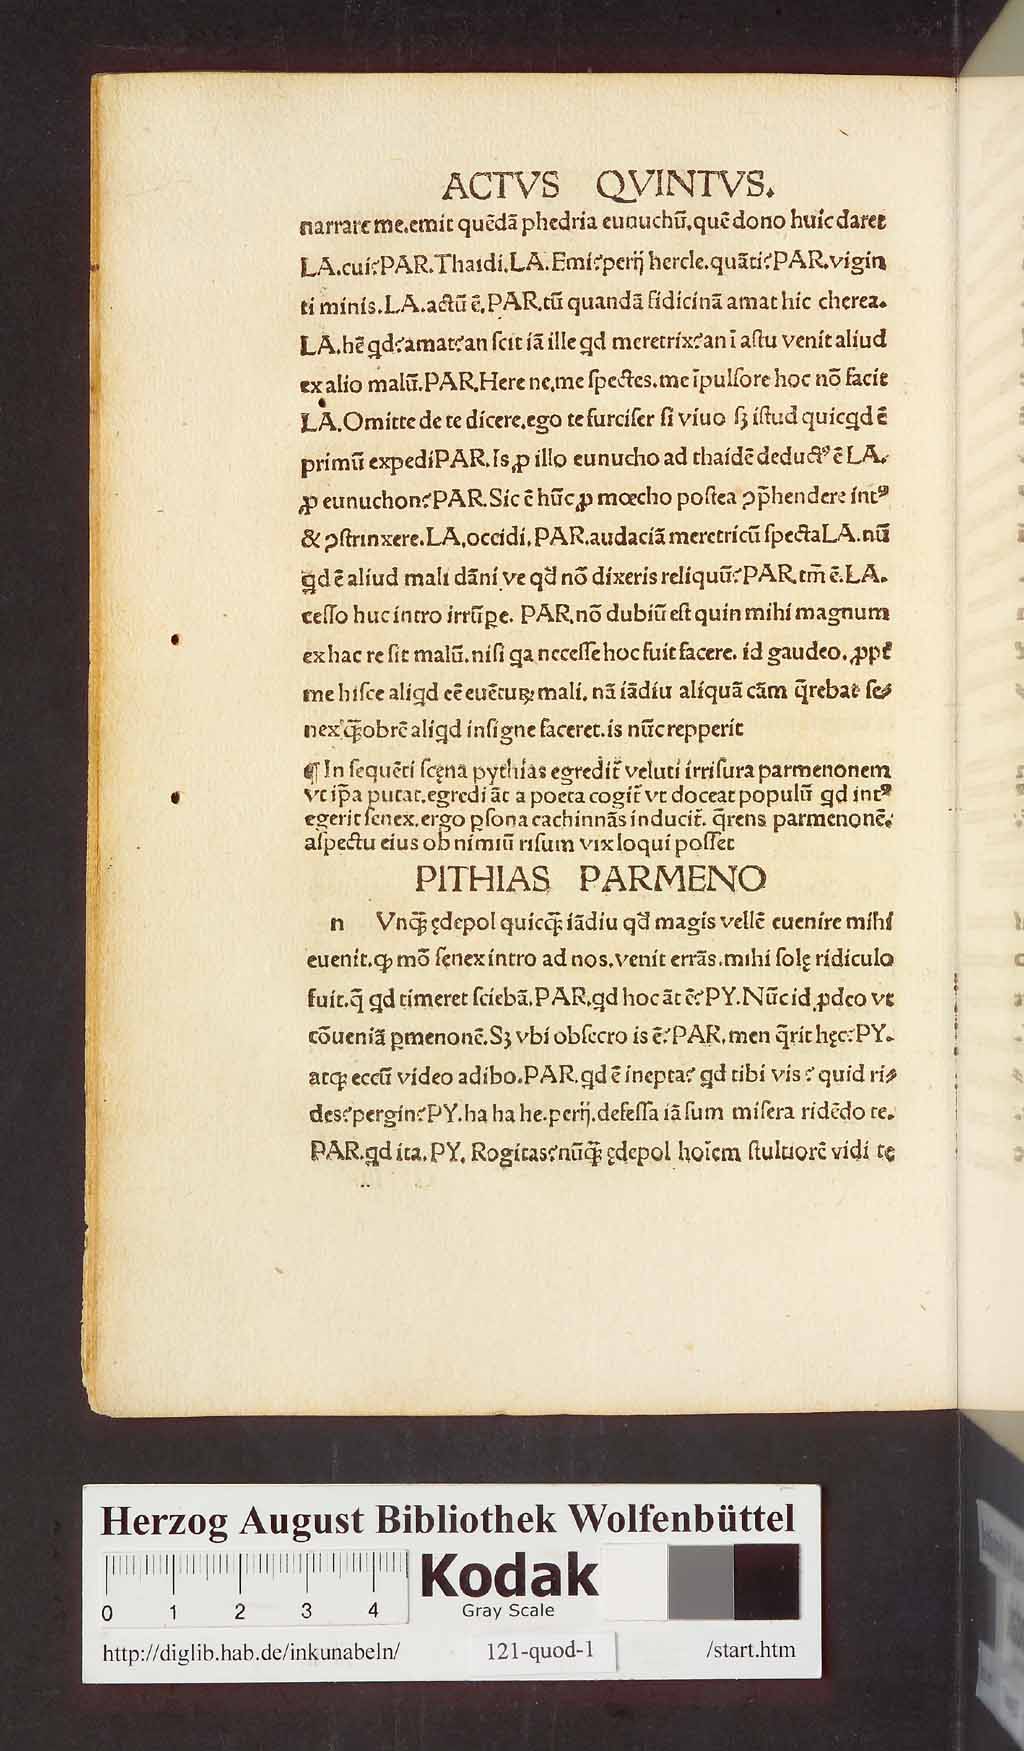 ACTVS QVINTVS.
narrare me.emit quēdā phedria eunuchū.quē dono huic daret
LA.cui?PAR.Thaidi.LA.Emi?perij hercle.quāti?PAR.vigin
ti minis.LA.actū ē.PAR.tū quandā fidicinā amat hic cherea.
LA.hē qd?amat?an ſcit iā ille qd meretrix?an ī aſtu venit aliud
ex alio malū.PAR.Here ne.me ſpectes.me īpulſore hoc nō facit
LA.Omitte de te dicere.ego te furcifer ſi viuo ſꝫ iſtud quicqd ē
primū expediPAR.Is ꝓ illo eunucho ad thaidē deductꝰ ē LA.
ꝓ eunuchon?PAR.Sic ē hūc ꝓ mœcho poſtea ꝯp̄hendere intꝰ
& ꝯſtrinxere.LA.occidi.PAR.audaciā meretricū ſpectaLA.nū
qd ē aliud mali dāni ve qd̛ nō dixeris reliquū?PAR.tm̄ ē.LA.
ceſſo huc intro irrūꝑe. PAR.nō dubiū eſt quin mihi magnum
ex hac re ſit malū.niſi qa neceſſe hoc fuit facere. id gaudeo.ꝓpt̄
me hiſce aliqd eē euētuꝝ mali. nā iādiu aliquā cām q̄rebat ſe⸗
nex q̄obrē aliqd inſigne faceret.is nūc repperit
¶ In ſequēti ſcęna pythias egredit̄ veluti irriſura parmenonem
vt ip̄a putat.egredi āt a poeta cogit̄ vt doceat populū qd intꝰ
egerit ſenex.ergo ꝑſona cachinnās inducit̄. q̄rens parmenonē.
aſpectu eius ob nimiū riſum vix loqui poſſet
PITHIAS PARMENO
n Vnq̄ ędepol quicq̄ iādiu qd̛ magis vellē euenire mihi
euenit.ꝙ mō ſenex intro ad nos.venit errās.mihi ſolę ridiculo
fuit.q̄ qd timeret ſciebā.PAR.qd hoc āt ē?PY.Nūc id ꝓdeo vt
cōueniā ꝑmenonē.Sꝫ vbi obſecro is ē?PAR.men q̄rit hęc?PY.
atqꝫ eccū video adibo.PAR.qd ē inepta? qd tibi vis? quid ri⸗
des?pergin?PY.ha ha he.perij.defeſſa iā ſum miſera ridēdo te.
PAR.qd ita.PY. Rogitas?nūq̄ ędepol hoīem ſtultiorē vidi tę
Herzog August Bibliothek Wolfenbüttel
0 1 2 3 4
Kodak
Gray Scale
http://diglib.hab.de/inkunabeln/ 121-quod-1 /start.htm